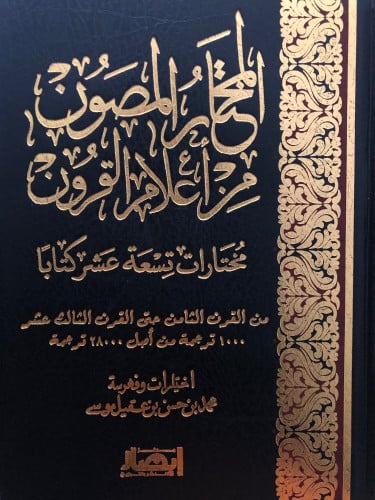 المختار المصون
من أعلام القرون
مختارات تسعة عشر كتابا
من القرن الثامن حتى القرن الثالث عشر
١٠٠٠ ترجمة من أصل ٢٨٠٠٠ ترجمة
اختيارات وفهرسة
محمد بن حسن بن عقيل موسى